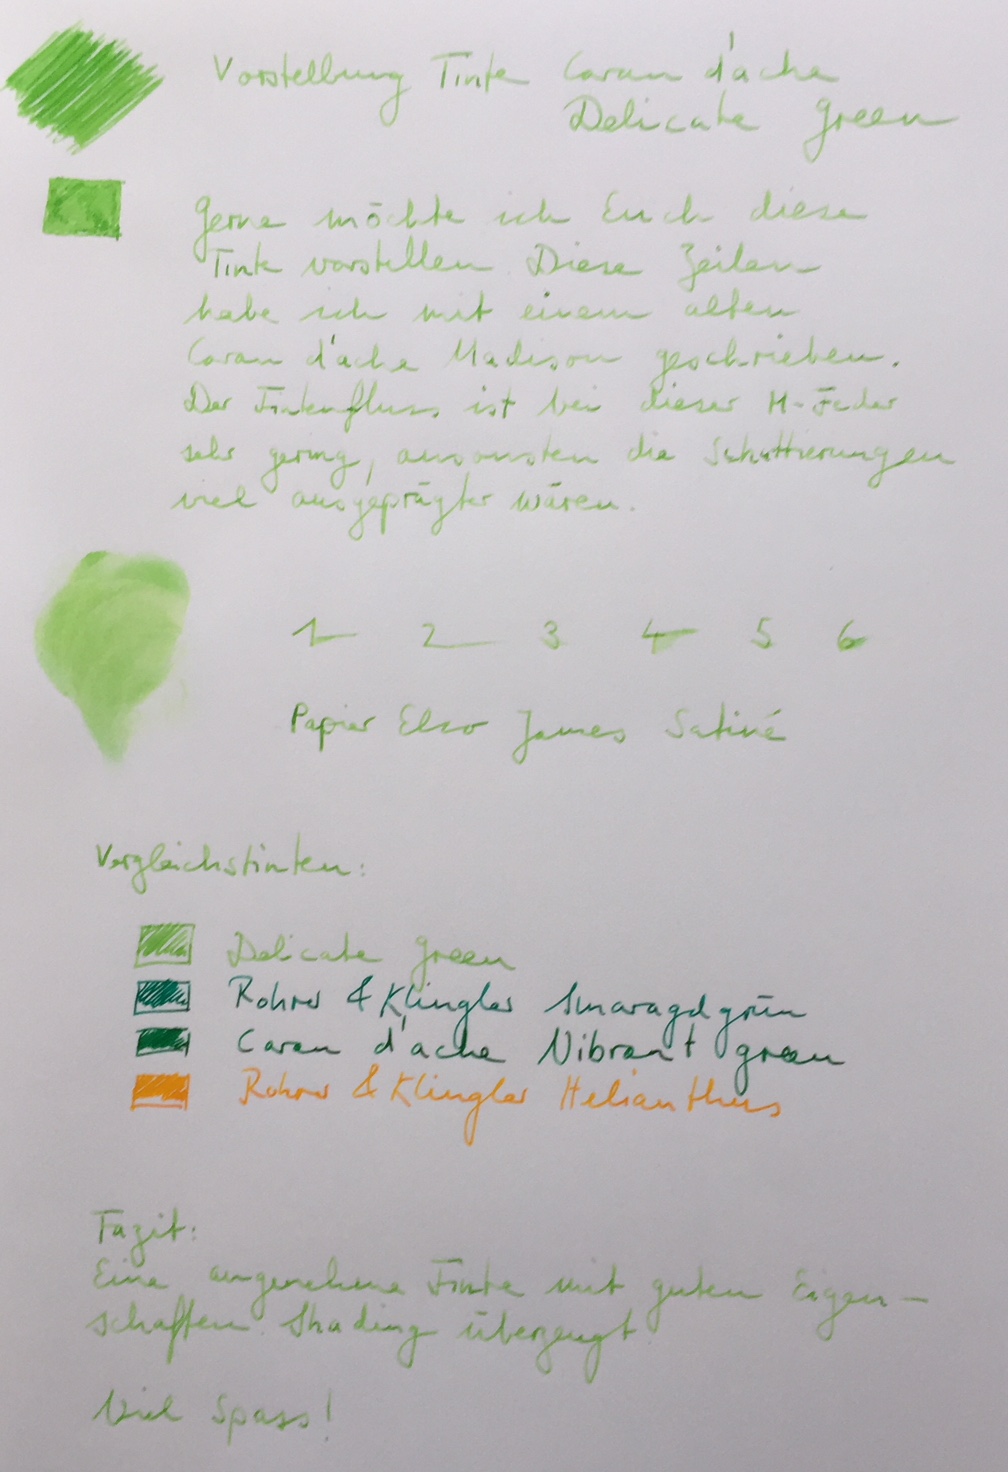 Vorstellung Tinte Caran d'ache
Delicate Green
Gerne möchte ich Euch diese
Tinte vorstellen. Diese Zeilen
habe ich mit einem alten
Caran d'ache Madison geschrieben.
Der Tintenfluss ist bei dieser M-Feder
sehr gering, ansonsten die Schattierungen
viel ausgeprägter wären.
1 2 3 4 5 6
Papier Elco James Satiné
Vergleichstinten:
Delicate Green
Rohrer & Klingler Smaragdgrün
Caran d'ache Vibrant green
Rohrer & Klingler Helianthus
Fazit:
Eine angenehme Tinte mit guten Eigen-
schaften. Shading überzeugt.
Viel Spass!